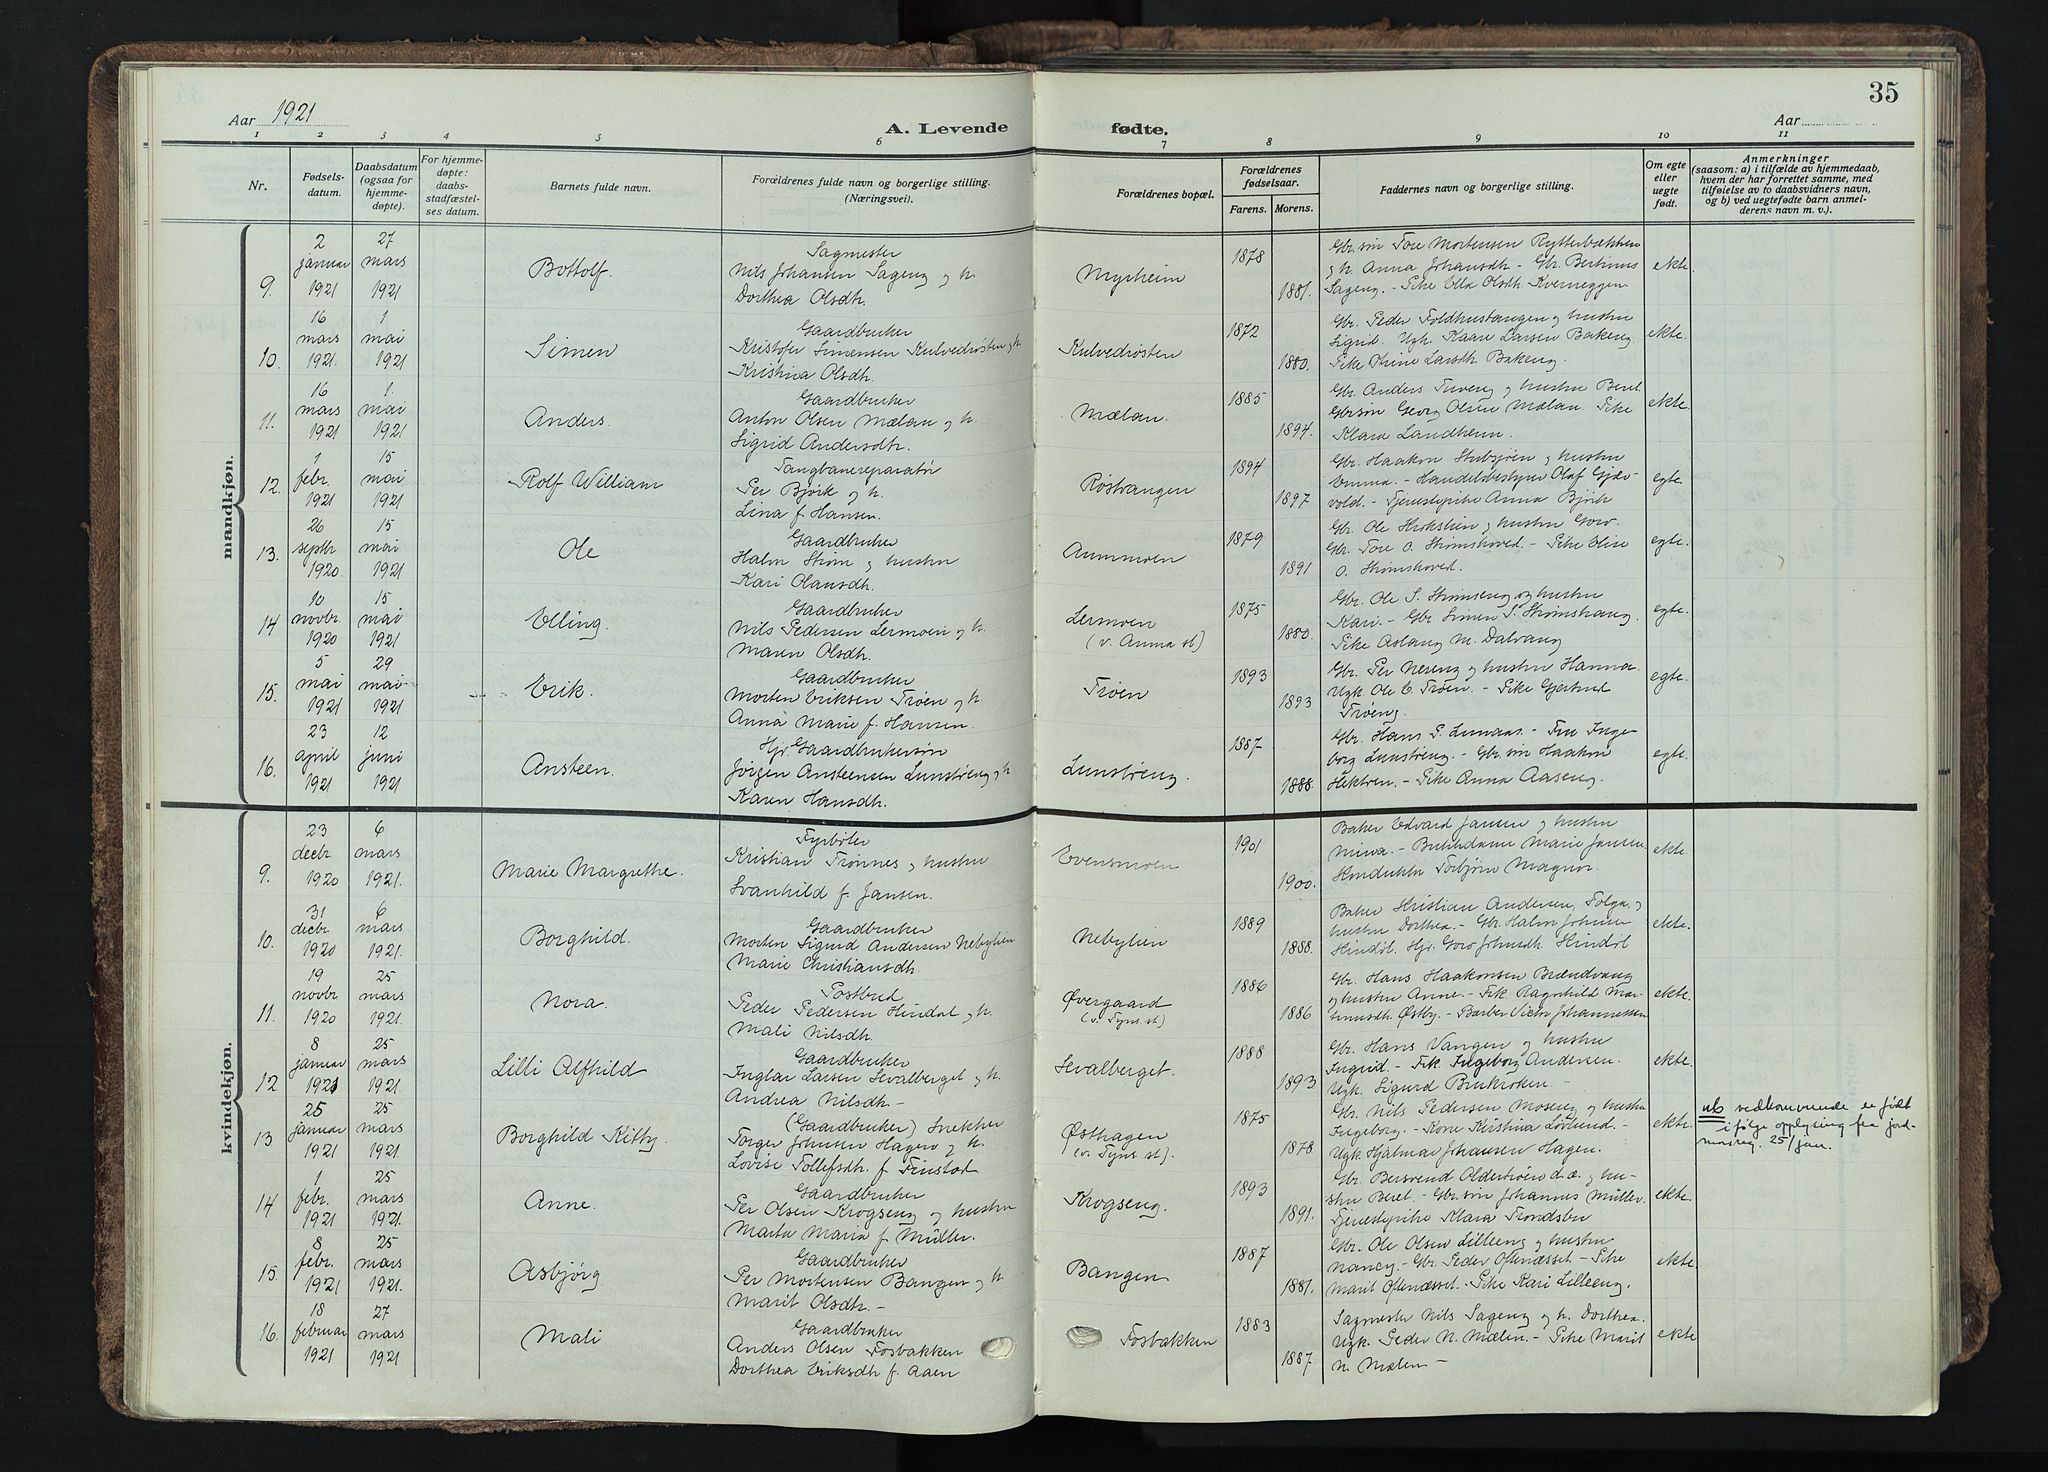 35
Aar 1921
A. Levende fødte.
Aar
1 2 3 4 5 6 7 8 9 10 11
Nr.
Fødsels-
datum.
Daabsdatum
(ogsaa for
hjemme-
døpte).
For hjemme-
døpte:
daabs-
stadfæstel-
ses datum.
Barnets fulde navn.
Forældrenes fulde navn og borgerlige stilling.
(Næringsvei).
Forældrenes bopæl.
Forældrenes
fødselsaar.
Farens. Morens.
Faddernes navn og borgerlige stilling.
Om egte
eller
uegte
født.
Anmerkninger
(saasom: a) i tilfælde av hjemmedaab,
hvem der har forrettet samme, med
tilføielse av to daabsvidners navn,
og b) ved uegtefødte barn anmel-
derens navn m. v.).
mandkjøn.
9.
2
januar
1921
27
mars
1921
Bottolf.
Sagmester
Nils Johansen Sageng og h.
Dorthea Olsdh.
Myrheim
1878
1881.
Gbr. søn Tore Mortensen Rytterbækken
og h. Anna Johansdh. - Gbr. Bertinus
Sageng. - Pike Ella Olsdh. Kverneggen
ekte.
10.
16
mars
1921.
1
mai
1921
Simen
Gaardbruker
Kristofer Simensen Kulvedrøsten og h.
Kristina Olsdh.
Kulvedrøsten
1872
1880.
Gbr. Peder Foldhustangen og hustru
Sigrid. Ugk. Kaare Larsen Bakeng
Pike Trine Larsdh. Bakeng.
ekte.
11.
16
mars
1921
1.
mai
1921
Anders.
Gaardbruker
Anton Olsen Mælan og h.
Sigrid Andersdh.
Mælan.
1885
1894.
Gbr. Anders Tuveng og hustru Beret
Gbr.søn Georg Olsen Mælan. Pike
Klara Landheim.
ekte.
12.
1
febr.
1921
15
mai
1921
Rolf William
Per Bjørk og h.
Lina f. Hansen.
Røstvangen
1894
1897
Gbr. Haakon Stubsjøen og hustru
Emma. - Handelsbestyrer Olaf Gjel-
vold. - Tjenestepike Anna Bjørk
egte
13.
26
septbr.
1920.
15
mai
1921
Ole
Gaardbruker
Halvor Strøm og hustru
Kari Olausdh.
Aummoen
1879
1891
Gbr. Tore O. Strømshoved. - Pike Elise
O. Strømshoved.
egte.
14
10
novbr.
1920
15
mai
1921
Elling.
Gaardbruker
Nils Pedersen Lermoen og h.
Maren Olsdh.
Lermoen
(v. Auma st)
1875
1880.
Gbr. Ole S. Strømseng og hustru
Kari. - Gbr Simen S. Strømshaug.
Pike Aslaug M. Dalvang
egte.
15.
5
mai
1921
29
mai
1921
Erik.
Gaardbruker
Morten Eriksen Trøen og h.
Anna Marie f. Hansen.
Trøen
1893
1893
Gbr. Per Nereng og hustru Hanna.
Ugk Ole E. Trøen. - Pike Gjertrud
Trøeng.
egte.
16.
23
april
1921
12
juni
1921
Ansteen.
Hjr. Gaardbrukersøn
Jørgen Ansteensen Lunstrøeng og h
Karen Hansdh.
Lunstrøeng.
1887
1888.
Gbr. Hans P. Lunaas. - Fru Inge-
borg Lunstrøeng. - Gbr. søn Haakon
Hektoen. - Pike Anna Aaseng.
egte.
kvindekjøn.
9.
23
decbr.
1920
6
mars
1921.
Marie Margrethe.
Fyrbøter
Kristian Trønnes og hustru
Svanhild f. Jansen.
Evensmoen
1901
1900.
Baker Edvard Jansen og hustru
Minva. - Butikdame Marie Jansen.
Konduktør Torbjørn Magnor.
ekte.
10.
31
decbr.
1920
6
mars
1921.
Borghild.
Gaardbruker
Morten Sigurd Andersen Nebylien
Marie Christiansdh
Nebylien
1889
1888.
Baker Kristian Andersen, Tolga, og
hustru Dorthea. - Gbr. Halvor Johnsen
Hindøl. Hjr. Goro Johnsdh. Hindøl
ekte.
11.
19
novbr
1920
25
mars
1921.
Nora.
Postbud
Peder Pedersen Hindøl og h.
Mali Nilsdh.
Øvergaard
(v. Tyns. st.)
1886
1886
Gbr. Hans Haakonsen Brændvang
og hustru Anne. - Frk. Ragnhild Mar-
tinusdh. Østby. - Barber Victor Johannessen
ekte.
12
8
januar
1921
25
mars
1921
Lilli Alfhild
Gaardbruker
Inglar Larsen Sevalberget og h.
Andrea Nilsdh. -
Sevalberget.
1888
1893
Gbr. Hans Vangen og hustru
Ingrid. - Frk Ingeborg Andersen.
Ugk. Sigurd Brukroken -
ekte.
13
25
januar
1921
25
mars
1921
Borghild Kitty.
(Gaardbruker) Snekker
Torger Johnsen Hagen og h.
Lovise Tollefsdh. f. Finstad
Østhagen
(v. Tyns st).
1875
1878
Gbr. Nils Pedersen Moseng og hustru
Ingeborg. - Kone Kristina Løvlund. -
Ugk. Hjalmar Johansen Hagen.
ekte.
NB vedkommende er født
ifølge opplysning fra jord-
morreg. 25/jan.
14
1
febr.
1921
25
mars
1921.
Anne.
Gaardbruker
Per Olsen Krogseng og hustru
Marta Maria f. Müller.
Krogseng.
1893
1891.
Gbr. Bersvend Oldertrøen d.æ. og hu-
stru Beret. - Gbr. søn Johannes Müller.
Tjenestepike Klara Trondsbu
ekte.
15.
8
febr.
1921
25
mars
1921.
Asbjørg
Gaardbruker
Per Mortensen Bangen og h.
Marit Olsdh. -
Bangen
1887
1881.
Gbr. Ole Olsen Lilleeng og hustru
Nancy. - Gbr. Peder Oftenæsset - Pike
Marit Oftenæsset. - Pike Kari Lilleeng.
ekte.
16.
18
februar
1921
27
mars
1921
Mali
Gaardbruker
Anders Olsen Fosbakken
Dorthea Eriksdh f. Aaen
Fosbakken
1883
1887
Sagmester Nils Sageng og h. Dorthea.
Ugk. Peder N. Mælen. - Pike Marit
N. Mælen -
ekte